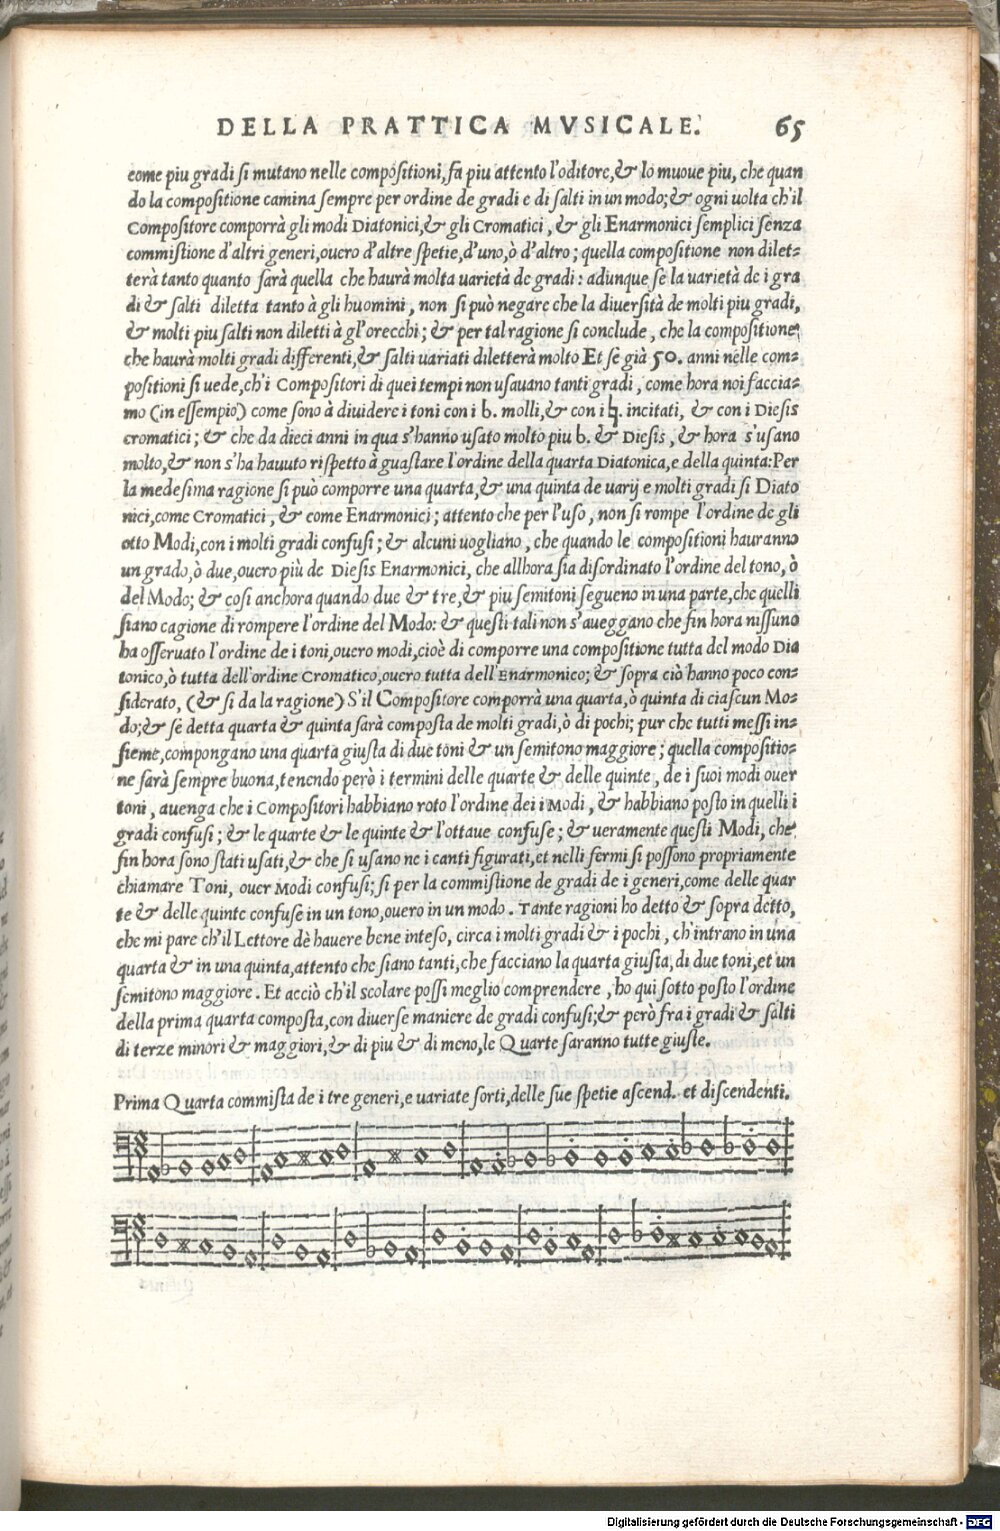 DELLA PRATTICA MVSICALE. 65
come piu gradi si mutano nelle compositioni, fa piu attento l'oditore, & lo muoue piu, che quan
do la compositione camina sempre per ordine de gradi e di salti in un modo; & ogni uolta ch'il
Compositore comporrà gli modi Diatonici, & gli Cromatici, & gli Enarmonici semplici senza
commistione d'altri generi, ouero d'altre spetie, d'uno, ò d'altro; quella compositione non dilet-
terà tanto quanto farà quella che haurà molta uarietà de gradi: adunque se la uarietà de i gra
di & salti diletta tanto à gli huomini, non si può negare che la diuersità de molti piu gradi,
& molti piu salti non diletti à gl'orecchi; & per tal ragione si conclude, che la compositione,
che haurà molti gradi differenti, & salti uariati diletterà molto Et se già 50. anni nelle com-
positioni si uede, ch'i Compositori di quei tempi non usauano tanti gradi, come hora noi faccia-
mo (in essempio) come sono à diuidere i toni con i b. molli, & con i ♮. incitati, & con i Diesis
cromatici; & che da dieci anni in qua s'hanno usato molto piu b. & Diesis, & hora s'usano
molto, & non s'ha hauuto rispetto à guastare l'ordine della quarta Diatonica, e della quinta: Per
la medesima ragione si può comporre una quarta, & una quinta de uarij e molti gradi si Diato
nici, come Cromatici, & come Enarmonici; attento che per l'uso, non si rompe l'ordine de gli
otto Modi, con i molti gradi confusi; & alcuni uogliano, che quando le compositioni hauranno
un grado, ò due, ouero più de Diesis Enarmonici, che allhora sia disordinato l'ordine del tono, ò
del Modo; & cosi anchora quando due & tre, & piu semitoni segueno in una parte, che quelli
siano cagione di rompere l'ordine del Modo: & questi tali non s'aueggano che fin hora nissuno
ha osseruato l'ordine de i toni, ouero modi, cioè di comporre una compositione tutta del modo Dia
tonico, ò tutta dell'ordine Cromatico, ouero tutta dell'Enarmonico; & sopra ciò hanno poco con-
siderato, (& si da la ragione) S'il Compositore comporrà una quarta, ò quinta di ciascun Mo-
do; & se detta quarta & quinta sarà composta de molti gradi, ò di pochi; pur che tutti messi in-
sieme, compongano una quarta giusta di due toni & un semitono maggiore; quella compositio-
ne sarà sempre buona, tenendo però i termini delle quarte & delle quinte, de i suoi modi ouer
toni, auenga che i Compositori habbiano roto l'ordine dei i Modi, & habbiano posto in quelli i
gradi confusi; & le quarte & le quinte & l'ottaue confuse; & ueramente questi Modi, che
fin hora sono stati usati, & che si usano ne i canti figurati, et nelli fermi si possono propriamente
chiamare Toni, ouer Modi confusi; si per la commistione de gradi de i generi, come delle quar
te & delle quinte confuse in un tono, ouero in un modo. Tante ragioni ho detto & sopra detto,
che mi pare ch'il Lettore dè hauere bene inteso, circa i molti gradi & i pochi, ch'intrano in una
quarta & in una quinta, attento che siano tanti, che facciano la quarta giusta, di due toni, et un
semitono maggiore. Et acciò ch'il scolare possi meglio comprendere, ho qui sotto posto l'ordine
della prima quarta composta, con diuerse maniere de gradi confusi; & però fra i gradi & salti
di terze minori & maggiori, & di piu & di meno, le Quarte saranno tutte giuste.
Prima Quarta commista de i tre generi, e uariate sorti, delle sue spetie ascend. et discendenti.
Digitalisierung gefördert durch die Deutsche Forschungsgemeinschaft - DFG